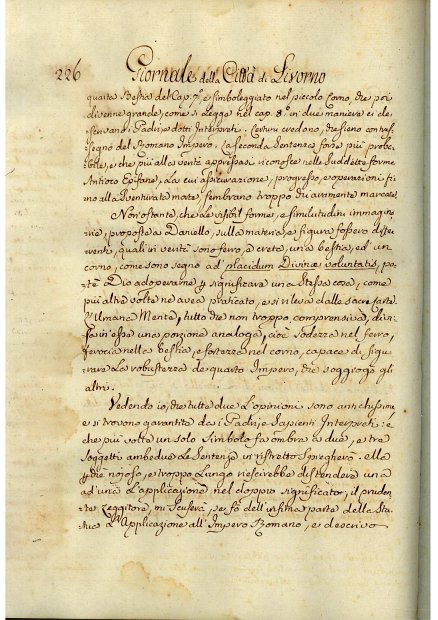 226 Giornale della Città di Livorno
quarta Bestia del Cap. 7.º e simboleggiato nel piccolo Corno, che poi
divenne grande, come si legge nel cap. 8.º in due maniera ci de
scrivano i Padri, e dotti Interpreti. Certuni credono, che siano contras
segno del Romano Impero. La seconda Sentenza forse più proba
bile, e che più alla verità appressasi riconosce nelle suddette forme
Antioco Epifane, la cui progresso, e operazioni fi
no alla sventurata morte sembrano troppo chiaramente marcate.
Non ostante, che le visibil forme, e similitudini immagina
rie, proposte a Daniello, sulla materia, e figura fossero diffe
renti, quali in verità sono ferro, e creta, una bestia, ed un
corno, come sono segno ad placidum Divinæ voluntatis, po
tè Dio adoperarne per significare una stessa cosa, come
più altre volte ne avea praticato, e si rileva dalle sacre carte.
L'Umana Mente, tutto che non troppo comprensiva, divi
sa in esse una porzione analoga, cioè sodezza nel ferro,
ferocia nella bestia, e fortezza nel corno, capace di figu
rare la robustezza del quarto Impero, che soggiogò gli
altri.
Vedendo io, che tutte due l'opinioni sono antichissime
e si trovono garantite da i Padri, e Sapienti Interpreti: e
che più volte un solo simbolo fa ombra a due, e tre
soggetti ambedue le Sentenze in ristretto spiegherò. Ma
perche nojoso, e troppo lungo riescirebbe distendere una
ad una l'applicazione nel doppio significato; il pruden
te Leggitore, mi scuserà, se fò dell'infima parte della Sta
tua l'Applicazione all'Impero Romano, e descrivo